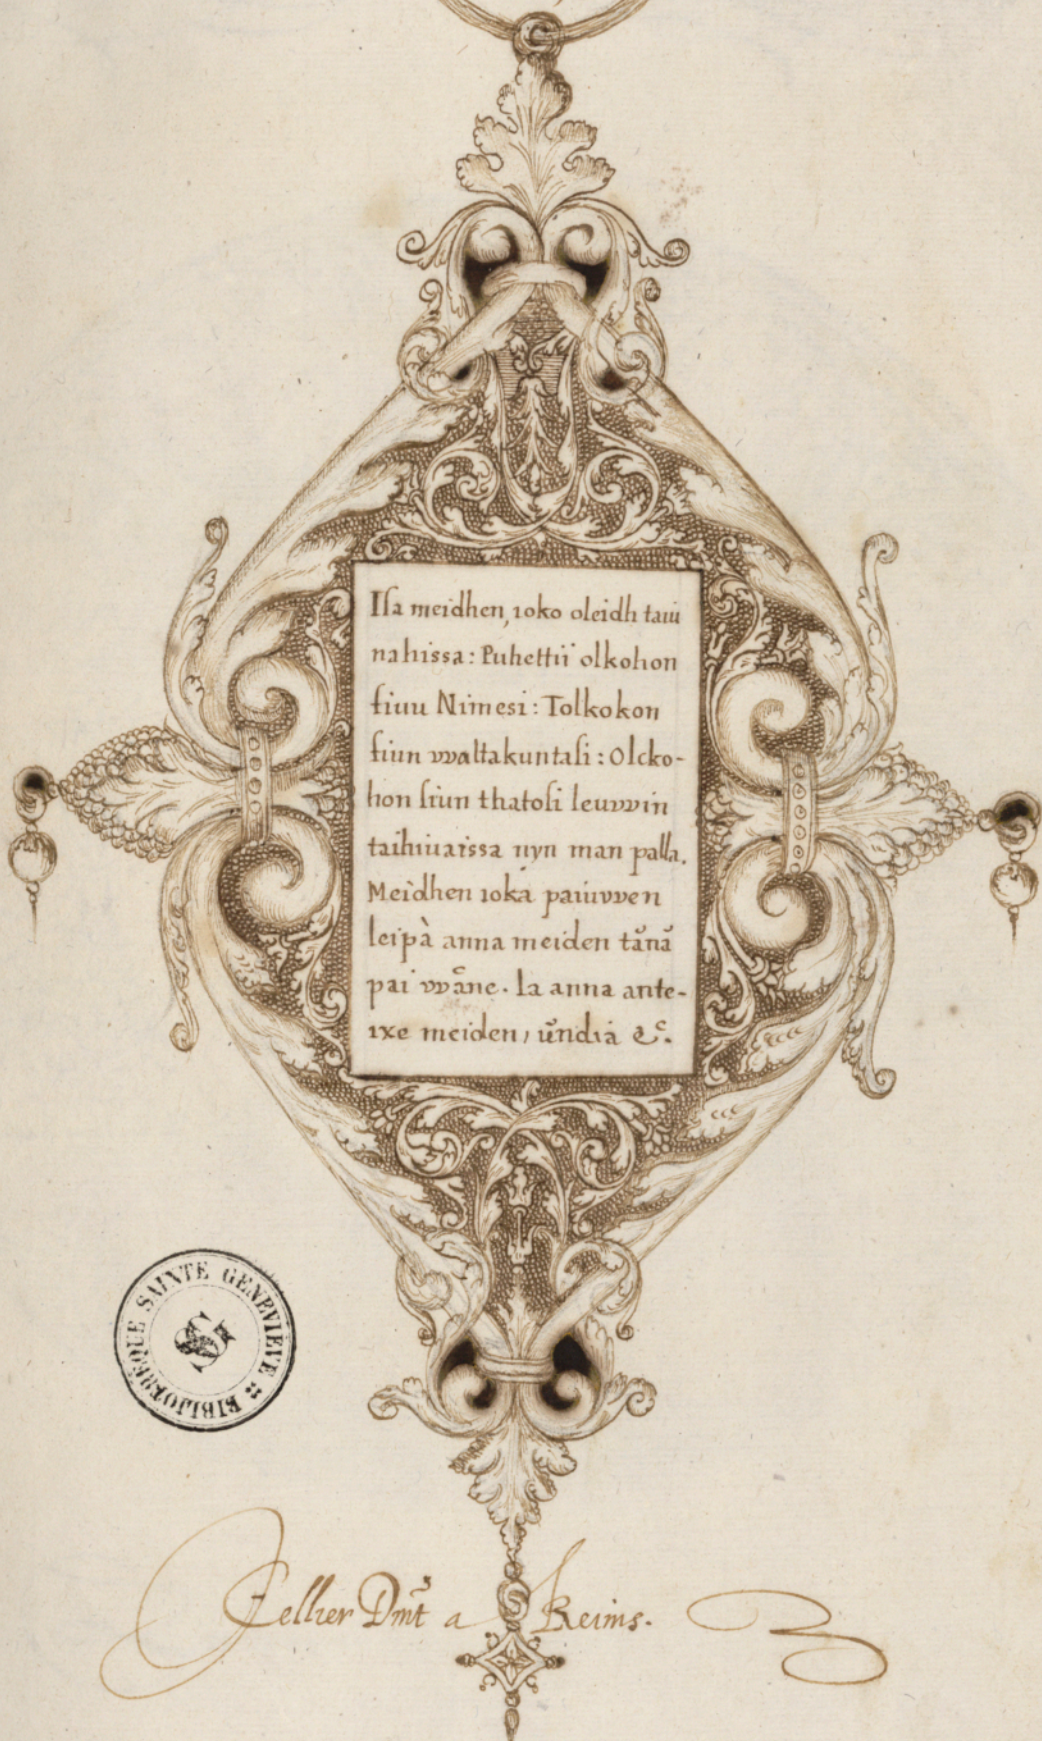 Isa meidhen, ioko oleidh taiu
nahissa: Puhettii olkohon
siuu Nimesi: Tolkokon
siun vvaltakuntasi: Olcko-
hon siun thatosi leuvvin
taihiuaissa nyn man palla.
Meidhen ioka paiuvven
leipà anna meiden tǎnǎ
pai vvǎne. Ia anna ante-
ixe meiden, ǔndia &c.
BIBLIOTHEQUE SAINTE GENEVIEVE
SG
Jellier Dmt a Reims.